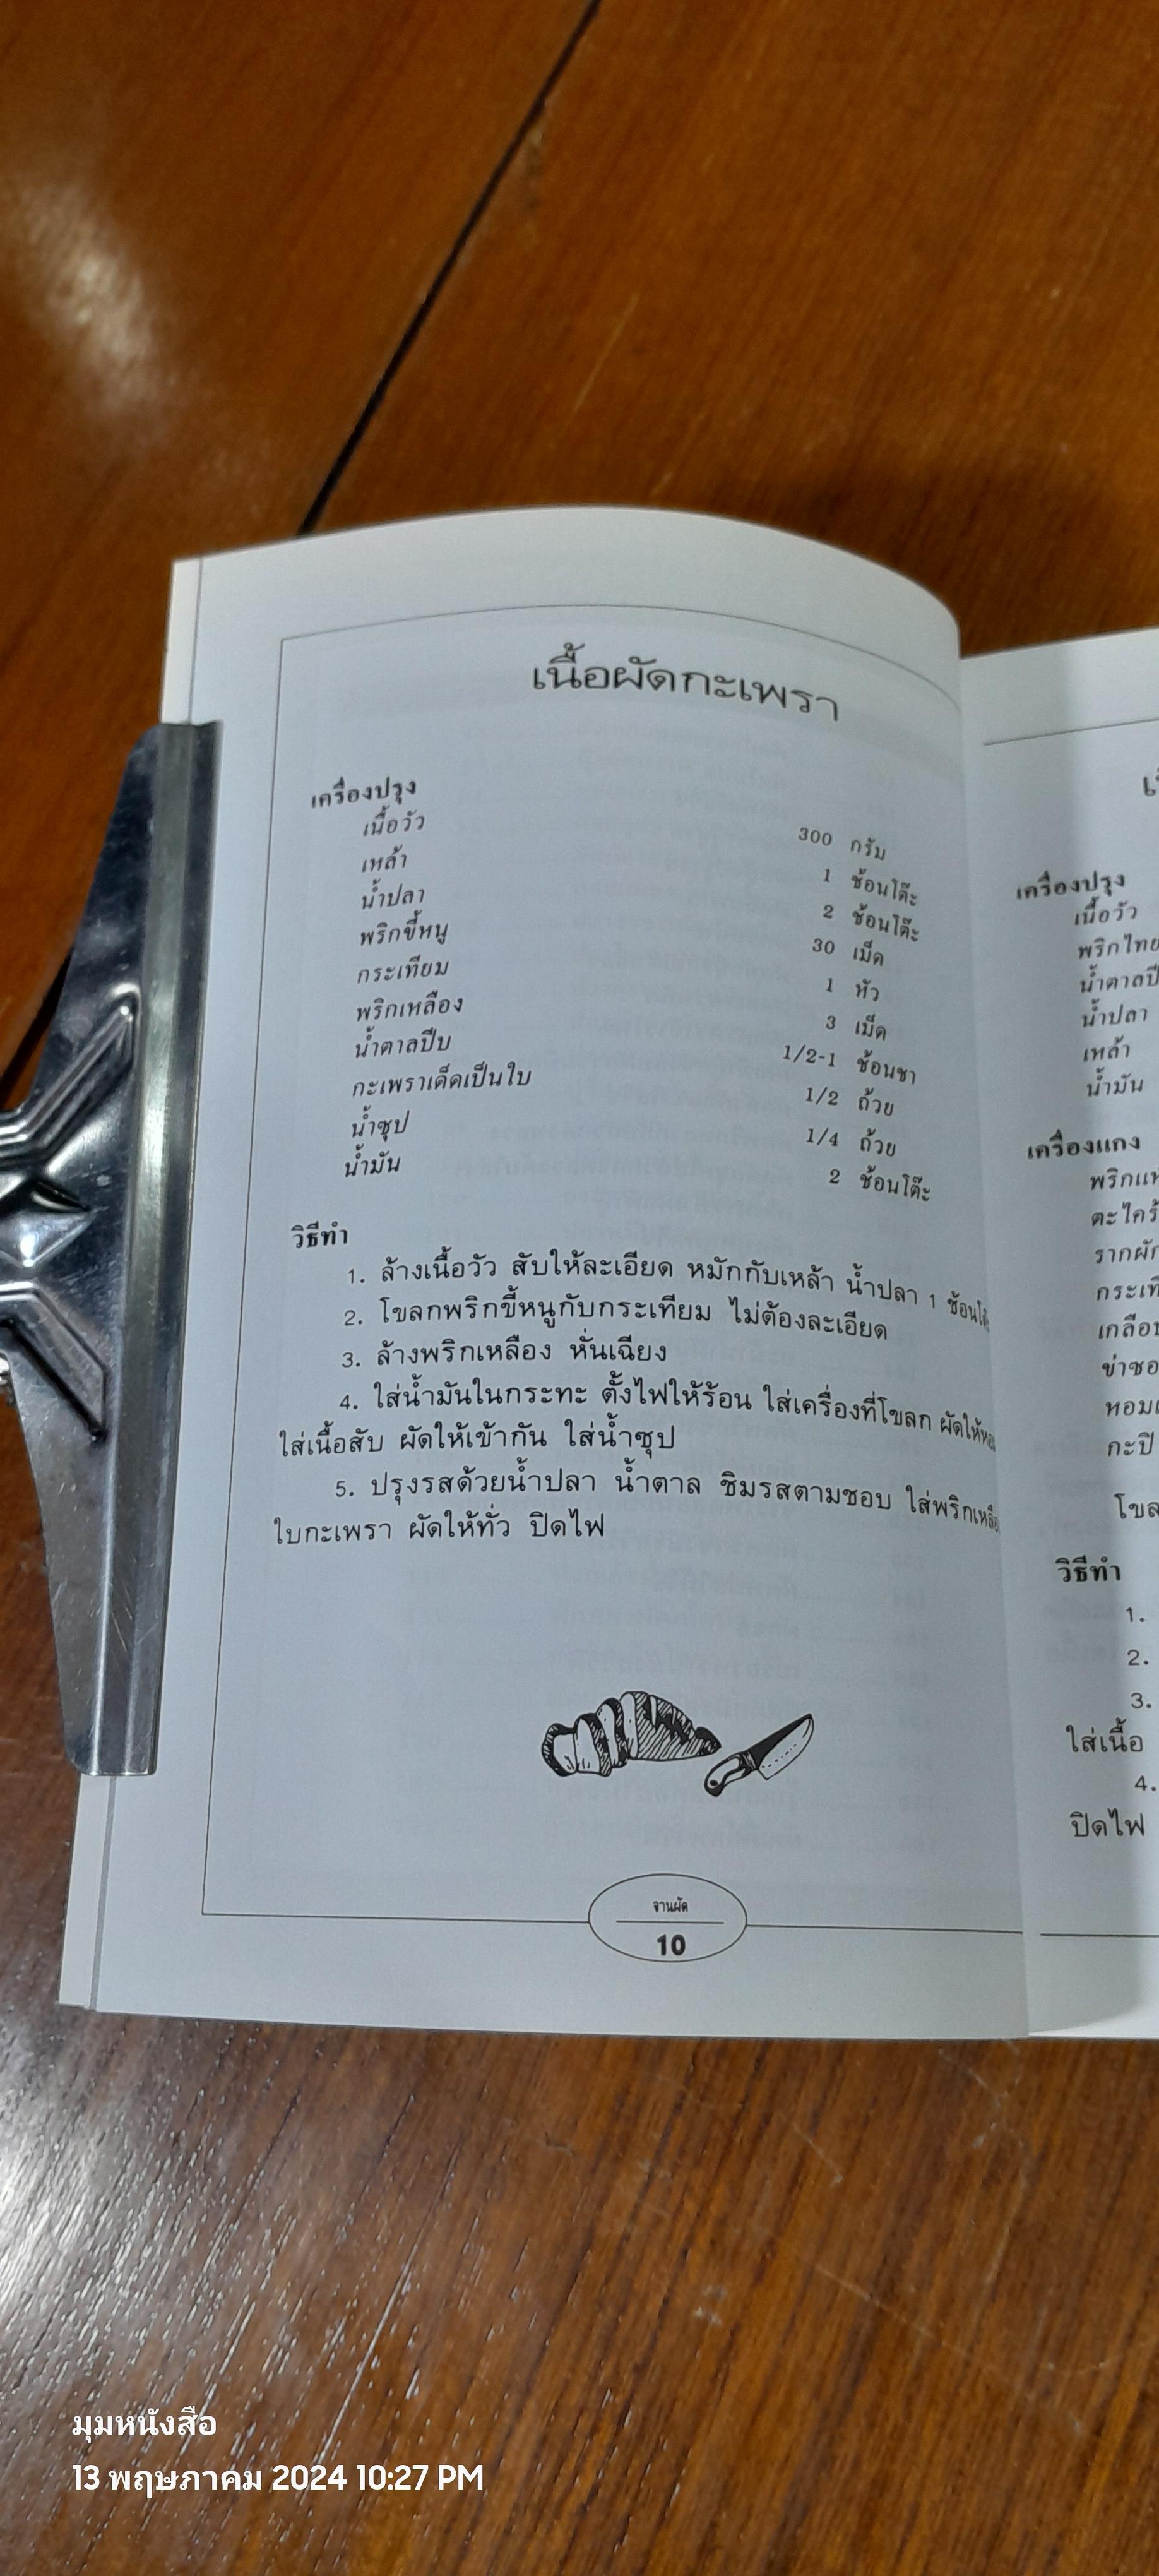 เนื้อผัดกะเพรา
เครื่องปรุง
เนื้อวัว 300 กรัม
เหล้า 1 ช้อนโต๊ะ
น้ำปลา 2 ช้อนโต๊ะ
พริกขี้หนู 30 เม็ด
กระเทียม 1 หัว
พริกเหลือง 3 เม็ด
น้ำตาลปีบ 1/2-1 ช้อนชา
กะเพราเด็ดเป็นใบ 1/2 ถ้วย
น้ำซุป 1/4 ถ้วย
น้ำมัน 2 ช้อนโต๊ะ
วิธีทำ
1. ล้างเนื้อวัว สับให้ละเอียด หมักกับเหล้า น้ำปลา 1
2. โขลกพริกขี้หนูกับกระเทียม ไม่ต้องละเอียด
3. ล้างพริกเหลือง หั่นเฉียง
4. ใส่น้ำมันในกระทะ ตั้งไฟให้ร้อน ใส่เครื่องที่โขลก ผัดให้
ใส่เนื้อสับ ผัดให้เข้ากัน ใส่น้ำซุป
5. ปรุงรสด้วยน้ำปลา น้ำตาล ชิมรสตามชอบ ใส่
ใบกะเพรา ผัดให้ทั่ว ปิดไฟ
จานผัด
10
เครื่องปรุง
เนื้อวัว
พริกไทย
น้ำปลา
เหล้า
น้ำมัน
เครื่องแกง
วิธีทำ
1.
2.
3.
ใส่เนื้อ
4.
ปิดไฟ
มุมหนังสือ
13 พฤษภาคม 2024 10:27 PM